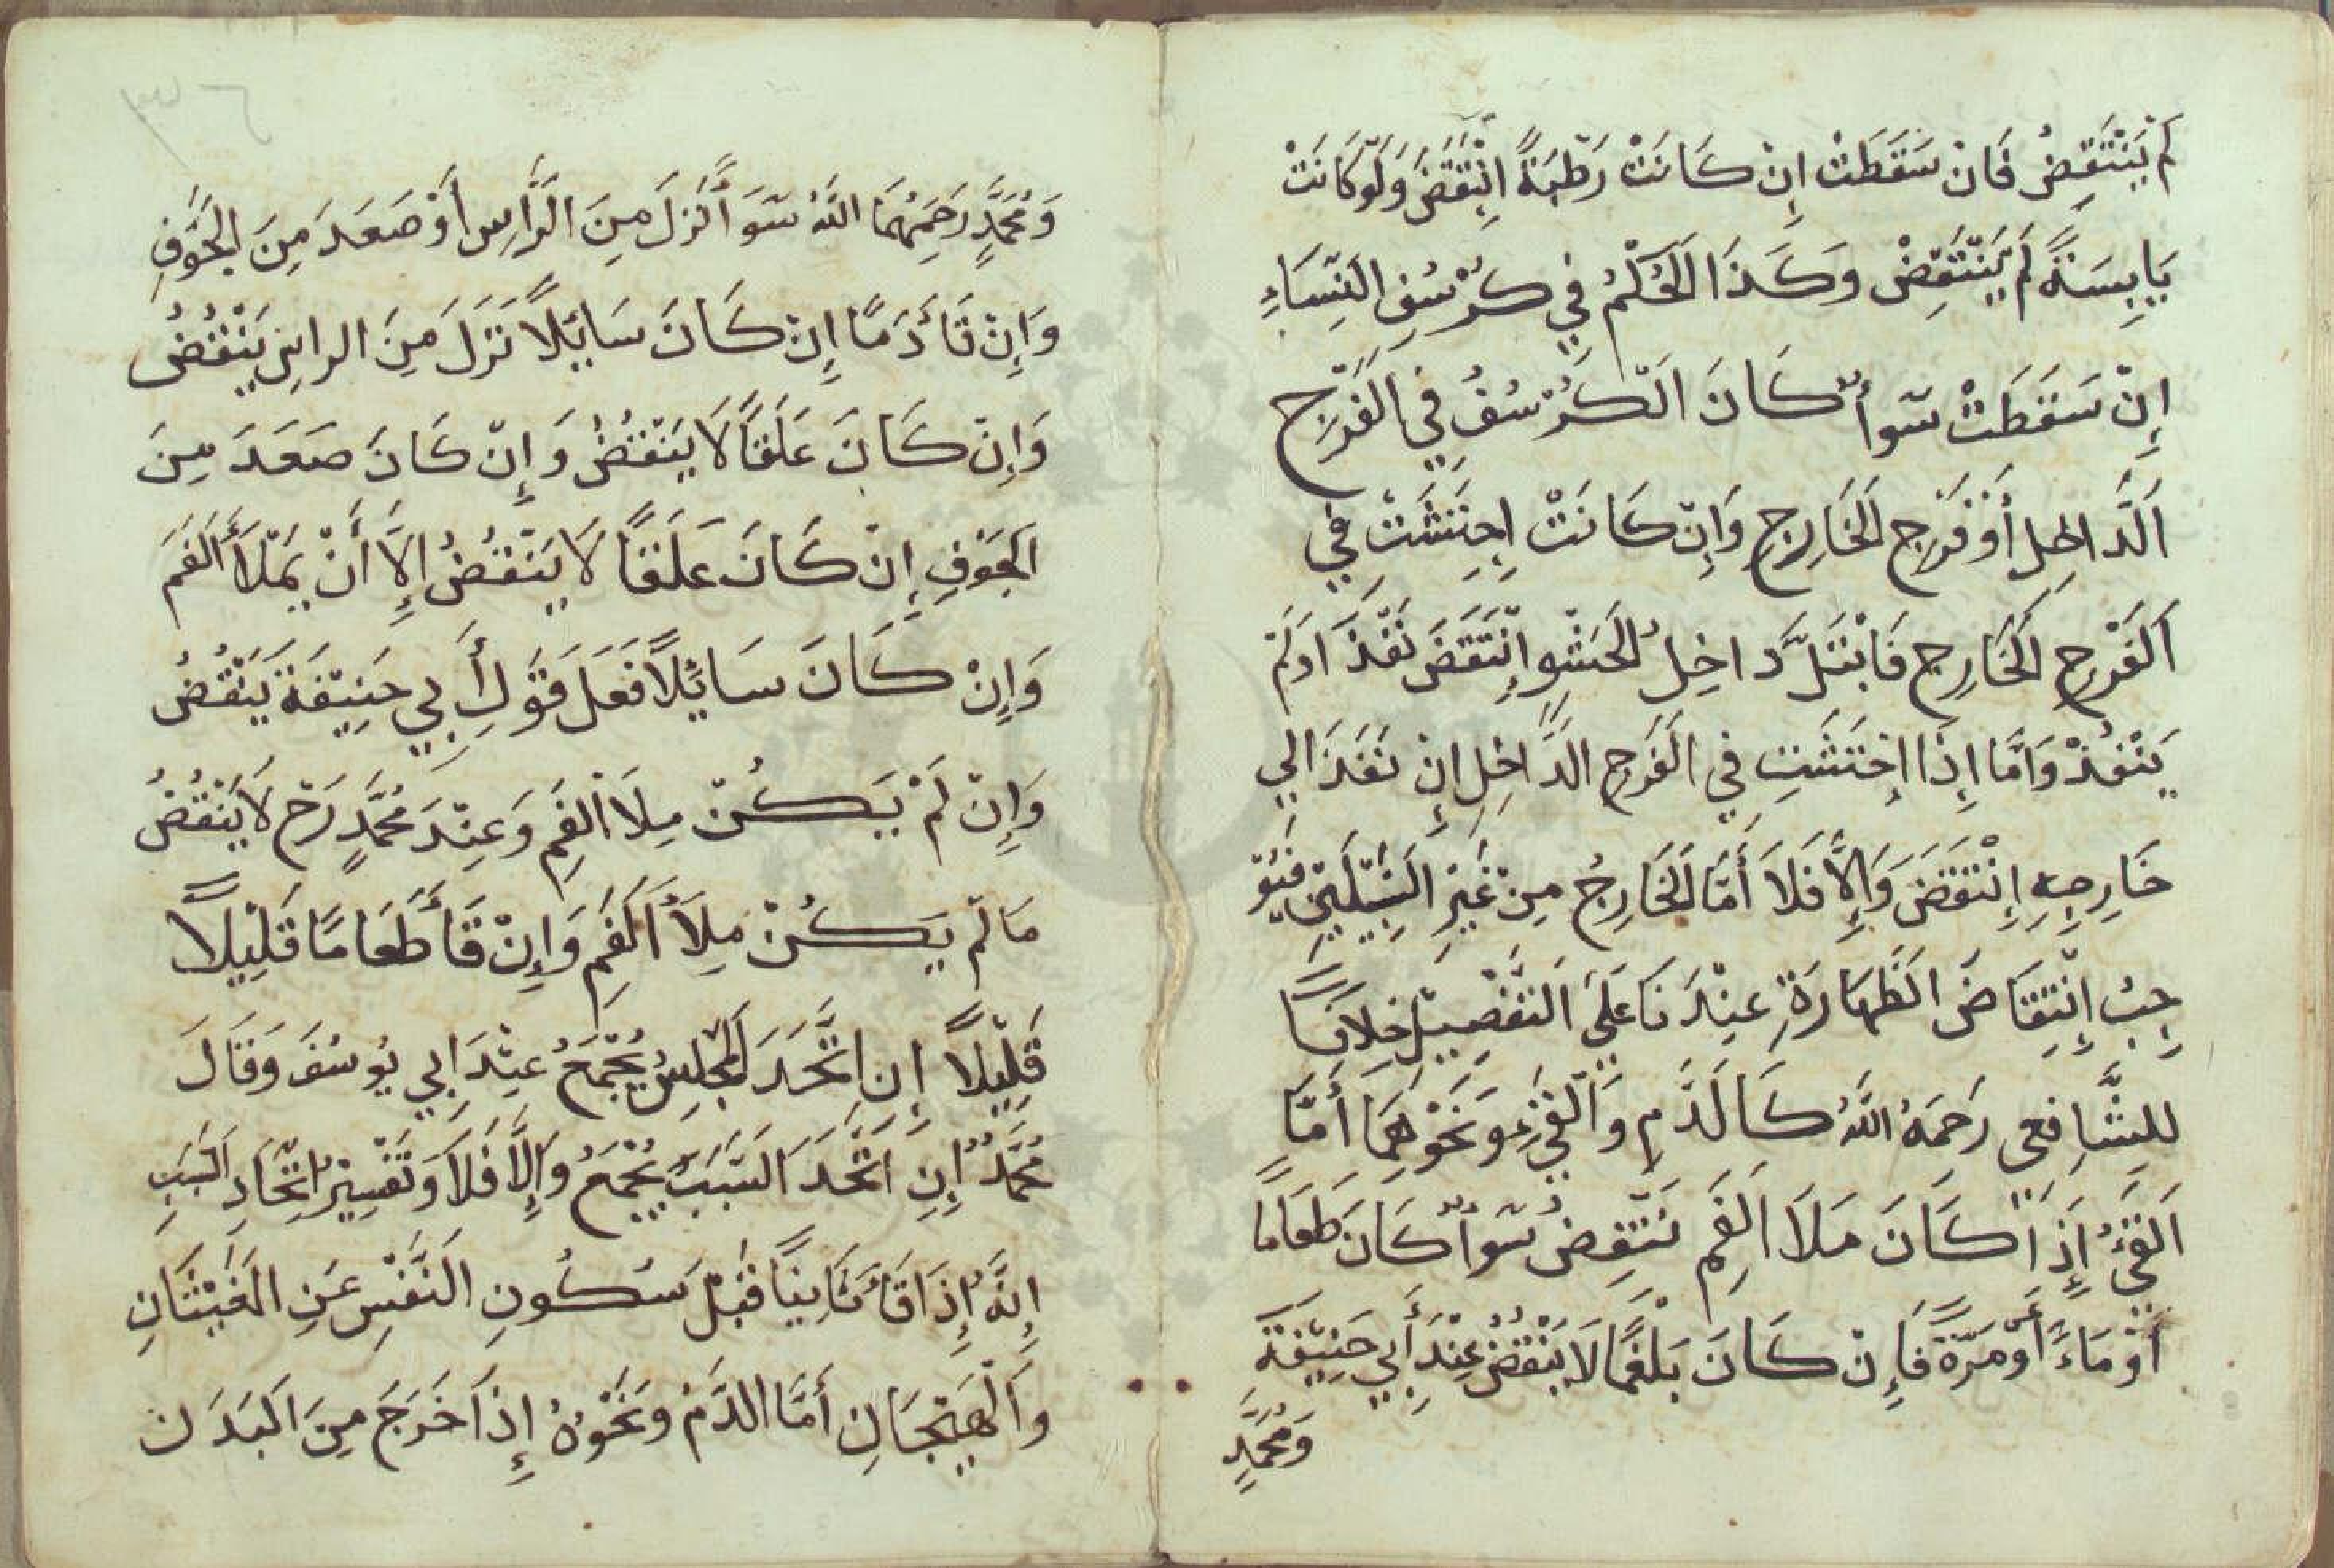 لَمْ يَنْتَقِضُ فَانْ سَقَطَتْ اِنْ كَانَتْ رَطْبَةً اِنْتَقَضَ وَلَوْ كَانَتْ
يَابِسَةً لَمْ يَنْتَقِضْ وَكَذَا الْحُكْمُ فِي كُرْسُفِ النِّسَاءِ
إِنْ سَقَطَتْ سَوأٌ كَانَ الْكُرْسُفُ فِي الْفَرْجِ
الدَّاخِلِ أَوْ فَرْجِ الْخَارِجِ وَاِنْ كَانَتْ اِحْتَشَتْ فِي
الْفَرْجِ الْخَارِجِ فَابْتَلَّ دَاخِلُ الْحَشْوِ اِنْتَقَضَ نَفَذَ اَوْ لَمْ
يَنْفُذْ وَاَمَّا اِذَا اِحْتَشَتِ فِي الْفَرْجِ الدَّاخِلِ اِنْ نَفَذَ الِي
خَارِجِهِ اِنْتَقَضَ وَاِلَّا فَلَا أَمَّا الْخَارِجُ مِنْ غَيْرِ السَّبِيلَيْنِ فَيُوْ
جِبُ اِنْتِقَاضَ الطَّهَارَةِ عِنْدَنَا عَلَي التَّفْصِيلِ خِلَافًا
لِلشَّافِعِي رَحِمَهُ اللَّهُ كَالدَّمِ وَالْقَيْءِ وَنَحْوِهِمَا أَمَّا
الْقَيْءُ إِذَا كَانَ مَلَا الْفَمِ نَنْتَقِضُ سَوأٌ كَانَ طَعَامًا
أَوْ مَاءً أَوْ مَرَّةً فَاِنْ كَانَ بَلْغَمًا لَا يَنْقُضُ عِنْدَ أَبِي حَنِيْفَةَ
وَمُحَمَّدٍ
وَمُحَمَّدٍ رَحِمَهُمَا اللَّهُ سَوَأً نَزَلَ مِنَ الرَّأسِ أَوْ صَعَدَ مِنَ الْجَوْفِ
وَاِنْ قَأَ دَمًا اِنْ كَانَ سَائِلًا نَزَلَ مِنَ الراسِ يَنْقُضُ
وَاِنْ كَانَ عَلَقًا لَا يَنْقُضُ وَاِنْ كَانَ صَعَدَ مِنَ
الْجَوْفِ اِنْ كَانَ عَلَقًا لَا يَنْقُضُ اِلَّا أَنْ يَمْلَأَ الْفَمَ
وَاِنْ كَانَ سَائِلًا فَعَلَ قَوْلِ أَبِي حَنِيْفَةَ يَنْقُضُ
وَاِنْ لَمْ يَكُنْ مِلَا الْفَمِ وَعِنْدَ مُحَمَّدٍ رَح لَا يَنْقُضُ
مَا لَمْ يَكُنْ مِلَأَ الْفَمِ وَاِنْ قَأَ طَعَامًا قَلِيْلًا
قَلِيْلًا اِنِ اتَّحَدَ الْمَجْلِسُ يُجْمَعُ عِنْدَ ابِي يُوسُفَ وَقَالَ
مُحَمَّدٌ اِنِ اتَّحَدَ السَّبَبُ يُجْمَعُ وَاِلَّا فَلَا وَتَفْسِيْرُ اتِّحَادِ السَّبَبِ
اِنَّهُ اِذَا قَأَ ثَانِيًا قَبْلَ سُكُونِ النَّفْسِ عَنِ الْغَيْثَانِ
وَالْهَيْجَانِ أَمَّا الدَّمُ وَنَحْوُهُ اِذَا خَرَجَ مِنَ الْبَدَنِ